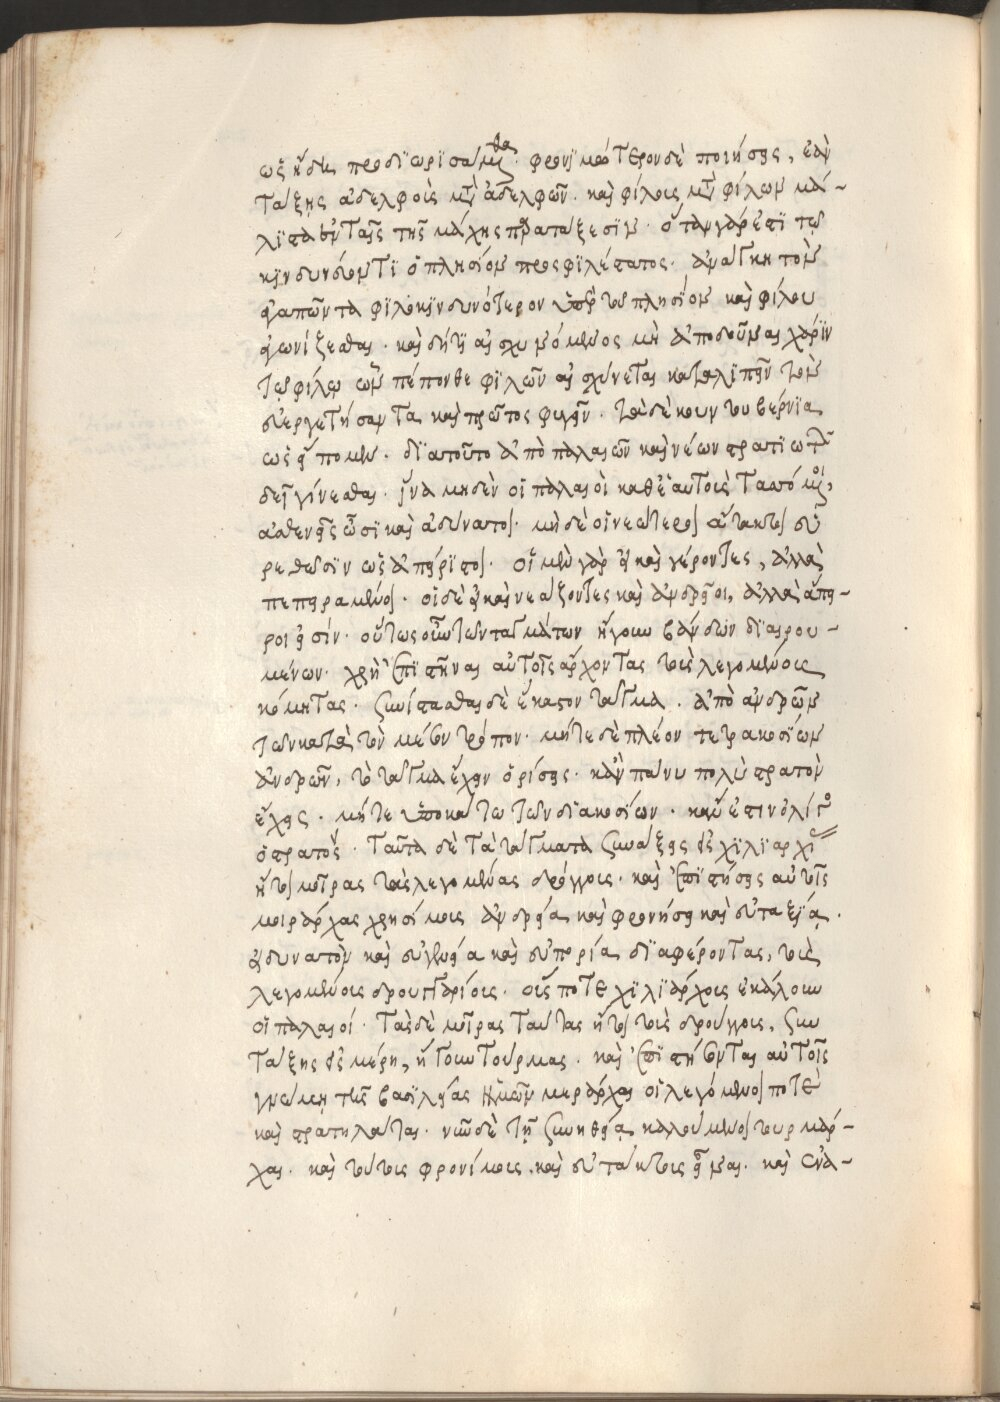 ὡς ἤδη προδιωρισάμεθα. φρονιμώτερον δὲ ποιήσῃς, ἐὰν
τάξῃς ἀδελφοὺς μετὰ ἀδελφῶν. καὶ φίλους μετὰ φίλων μά-
λιστα ἐν ταῖς τῆς μάχης παρατάξεσιν. ὅταν γὰρ ἐπὶ τῷ
κινδυνεύοντι ὁ πλησίον προσφιλέστατος. ἀνάγκη τὸν
ἀγαπῶντα φιλοκινδυνότερον ὑπὲρ τοῦ πλησίον καὶ φίλου
ἀγωνίζεσθαι. καὶ δή τις αἰσχυνόμενος μὴ ἀποδοῦναι χάριν
τῷ φίλῳ ὧν πέπονθε φιλῶν αἰσχύνεται καταλιπεῖν τὸν
εὐεργετήσαντα καὶ πρῶτος φυγεῖν. τὰ δὲ κουντουβέρνια
ὡς εἴπομεν. διατοῦτο ἀπὸ παλαιῶν καὶ νέων στρατιωτῶν
δεῖ γίνεσθαι. ἵνα μηδὲν οἱ παλαιοὶ καθ' ἑαυτοὺς ταττόμενοι,
ἀσθενεῖς ὦσι καὶ ἀδύνατοι. μὴ δὲ οἱ νεώτεροι ἄτακτοι εὑ
ρεθῶσιν ὡς ἀπείριτοι. οἱ μὲν γὰρ εἰ καὶ γέροντες, ἀλλὰ
πεπειραμένοι. οἱ δὲ εἰ καὶ νεάζοντες καὶ ἀνδρεῖοι, ἀλλὰ ἄπει-
ροι εἰσίν. οὕτως οὖν τῶν ταγμάτων ἤγουν βάνδων διαιρου-
μένων. χρὴ ἐπιστῆναι αὐτοῖς ἄρχοντας τοὺς λεγομένους
κόμητας. συνίστασθαι δὲ ἕκαστον τάγμα. ἀπὸ ἀνδρῶν
τῶν κατὰ τὸν μέσον τρόπον. μήτε δὲ πλέον τετρακοσίων
ἀνδρῶν, τὸ τάγμα ἔχειν ὁρίσῃς. κἂν πάνυ πολὺ στρατὸν
ἔχῃς. μήτε ὑποκάτω τῶν διακοσίων. κἂν ἐστιν ὀλίγος
ὁ στρατός. Ταῦτα δὲ τὰ τάγματα συνάξῃς εἰς χιλιαρχίας
ἤτοι μοίρας τὰς λεγομένας δρόγγους. καὶ ἐπιστήσῃς αὐτοῖς
μοιράρχας χρησίμους ἀνδρείᾳ καὶ φρονήσει καὶ εὐταξίᾳ.
εἰ δυνατὸν καὶ εὐγενείᾳ καὶ εὐπορίᾳ διαφέροντας, τοὺς
λεγομένους δρουγγαρίους. οὕς ποτε χιλιάρχους ἐκάλουν
οἱ παλαιοί. Τὰς δὲ μοίρας ταύτας ἤτοι τοὺς δρούγγους, συν
τάξῃς εἰς μέρη, ἤγουν τούρμας. καὶ ἐπιστήσονται αὐτοῖς
γνώμῃ τῆς βασιλείας ἡμῶν μεράρχαι οἱ λεγόμενοι ποτὲ
καὶ στρατηλάται. νῦν δὲ τῇ συνηθείᾳ καλούμενοι τουρμάρ-
χαι. καὶ τούτους φρονίμους, καὶ εὐτάκτους εἶναι. καὶ ἐνα-